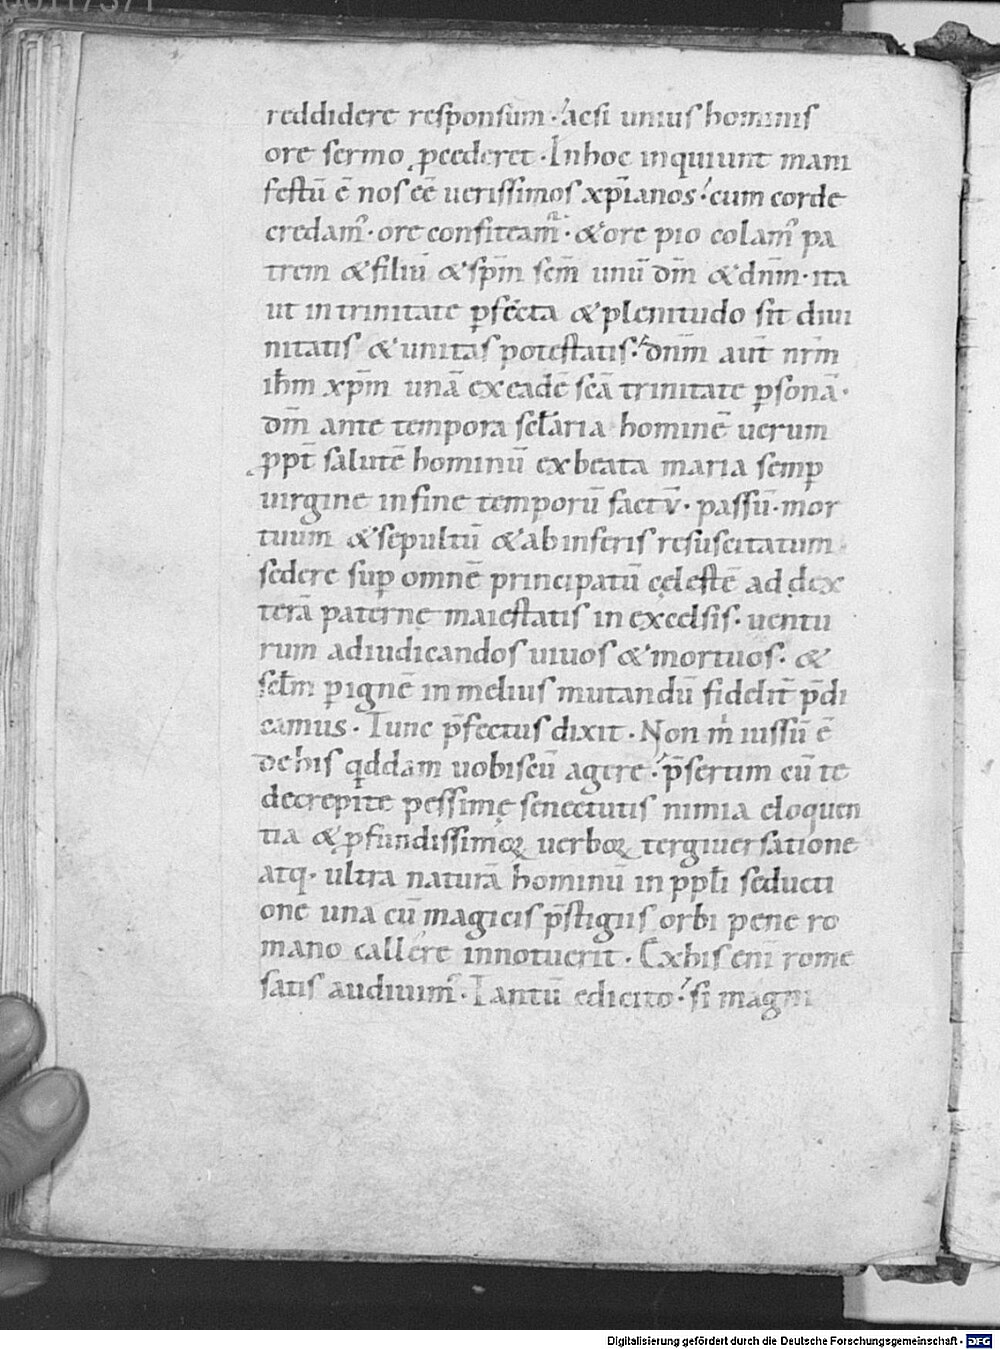 reddidere responsum · acsi unius hominis
ore sermo ꝓcederet · In hoc inquiunt mani
festū ē nos eē uerissimos xp̄ianos · cum corde
credam᷒ · ore confiteam᷒ · & ore pio colam᷒ pa
trem & filiū & sp̄m scm̄ unū dm̄ & dnm̄ · ita
ut in trinitate ꝑfecta & plenitudo sit diui
nitatis & unitas potestatis · dnm̄ aut̄ nrm̄
ih̄m xp̄m unā ex eadē scā trinitate ꝑsonā ·
dm̄ ante tempora sclaria hominē uerum
ꝓpt̄ salutē hominū ex beata maria semꝑ
uirgine in fine temporū factū · passū · mor
tuum & sepultū & ab inferis resuscitatum
sedere suꝑ omnē principatū cęlestē ad dex
terā paternę maiestatis in excelsis · uentu
rum ad iudicandos uiuos & mortuos · &
sclm̄ ꝑ ignē in melius mutandū fidelit̄ p̄di
camus · Tunc p̄fectus dixit · Non m̄ iussū ē
de his qddam uobiscū agere · p̄sertim cū te
decrepite pessimę senectutis nimia eloquen
tia & ꝓfundissimoꝝ uerboꝝ tergiuersatione
atq · ultra naturā hominū in ppl̄i seducti
one una cū magicis p̄stigiis orbi pene ro
mano callere innotuerit · Ex his enī rome
satis audiuim᷒ · Tantū edicito · si magni
00117371
Digitalisierung gefördert durch die Deutsche Forschungsgemeinschaft - DFG